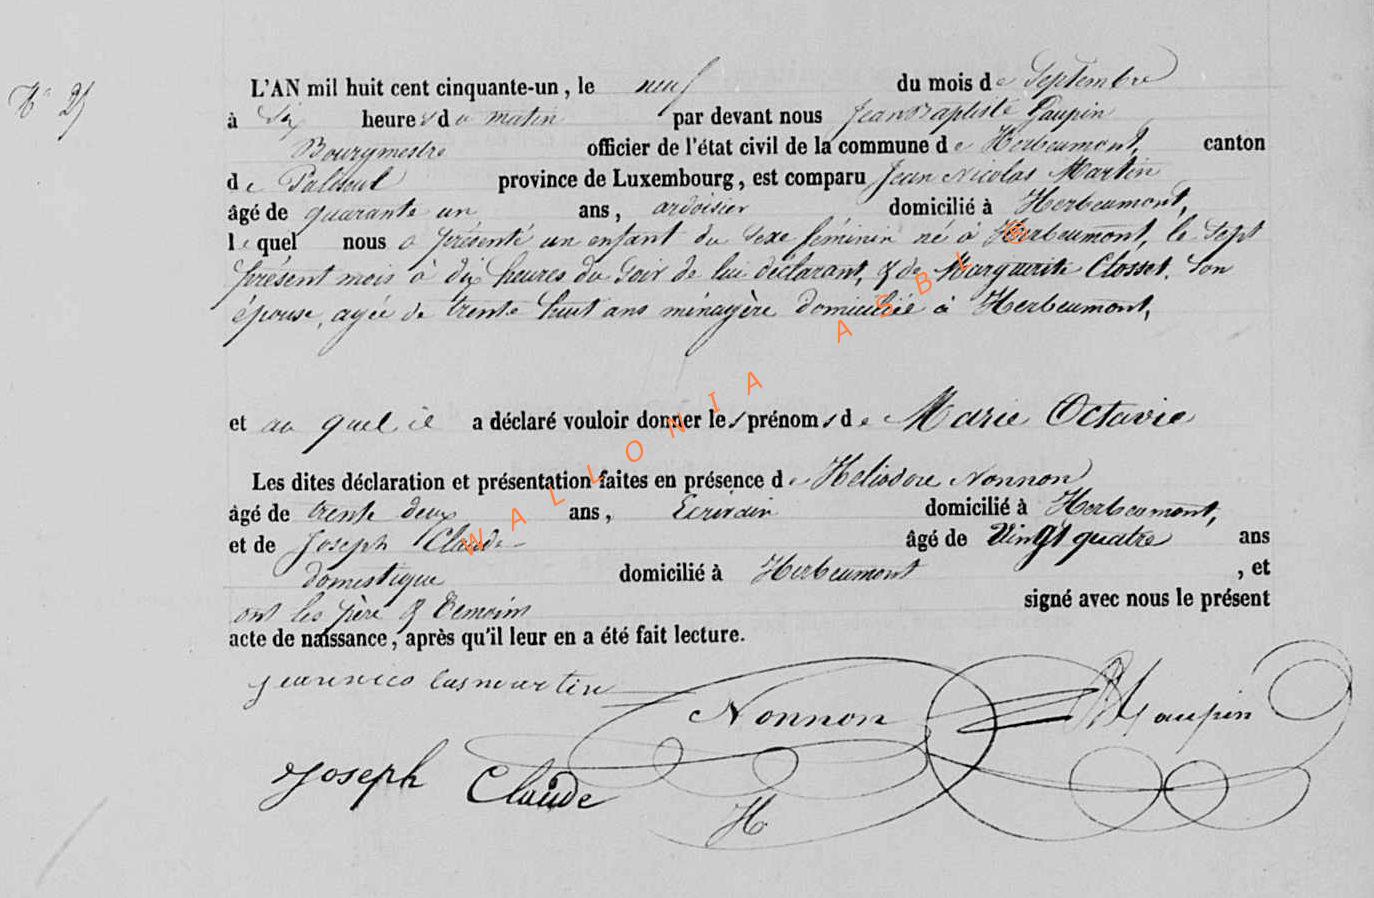 N° 25
L'AN mil huit cent cinquante-un, le neuf du mois de Septembre
à dix heures du matin par devant nous Jean Baptiste Gaupin
Bourgmestre officier de l'état civil de la commune de Herbeumont, canton
de Paliseul province de Luxembourg, est comparu Jean Nicolas Martin
âgé de quarante un ans, ardoisier domicilié à Herbeumont,
lequel nous a présenté un enfant du sexe féminin né à Herbeumont, le sept
présent mois à dix heures du soir de lui déclarant, & de Marguerite Closset, son
épouse, agée de trente huit ans ménagère domiciliée à Herbeumont,
et au quel il a déclaré vouloir donner les prénoms de Marie Octavie
Les dites déclaration et présentation faites en présence de Heliodore Nonnon
âgé de trente deux ans, Ecrivain domicilié à Herbeumont,
et de Joseph Claude âgé de Vingt quatre ans
domestique domicilié à Herbeumont, et
ont les père & témoins signé avec nous le présent
acte de naissance, après qu'il leur en a été fait lecture.
jeannicolasmartin
Nonnon
Gaupin
Joseph Claude
H
WALLONIA ASBL ®